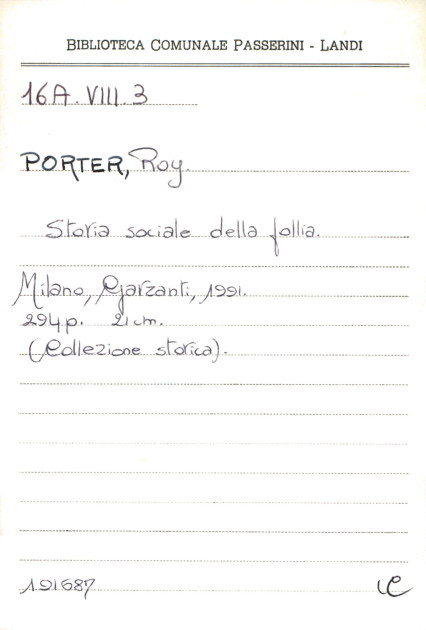 BIBLIOTECA COMUNALE PASSERINI - LANDI
16A.VIII.3
PORTER, Roy.
Storia sociale della follia.
Milano, Garzanti, 1991.
294p. 21cm.
(Collezione storica).
191687